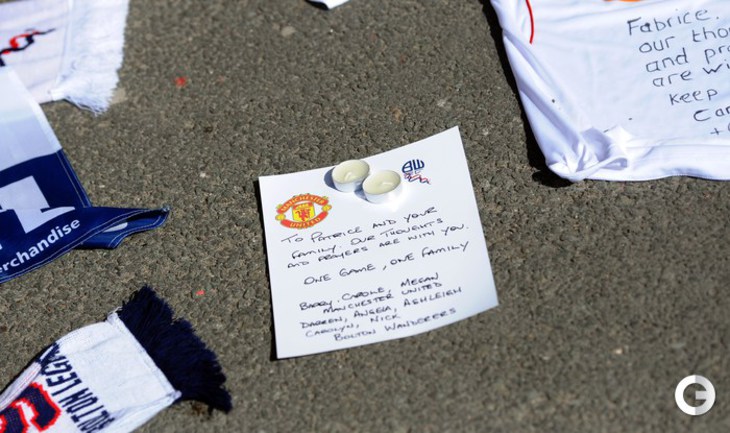 Fabrice.
our tho
and pr
are wi
Keep
Ca
MANCHESTER
UNITED
BW
TO PATRICE AND YOUR
FAMILY. OUR THOUGHTS
AND PRAYERS ARE WITH YOU.
ONE GAME, ONE FAMILY
BARRY, CAROLE, MEGAN
MANCHESTER UNITED
DARREN, ANGELA, ASHLEIGH
CAROLYN, NICK
BOLTON WANDERERS
rchandise
OLTON LEG